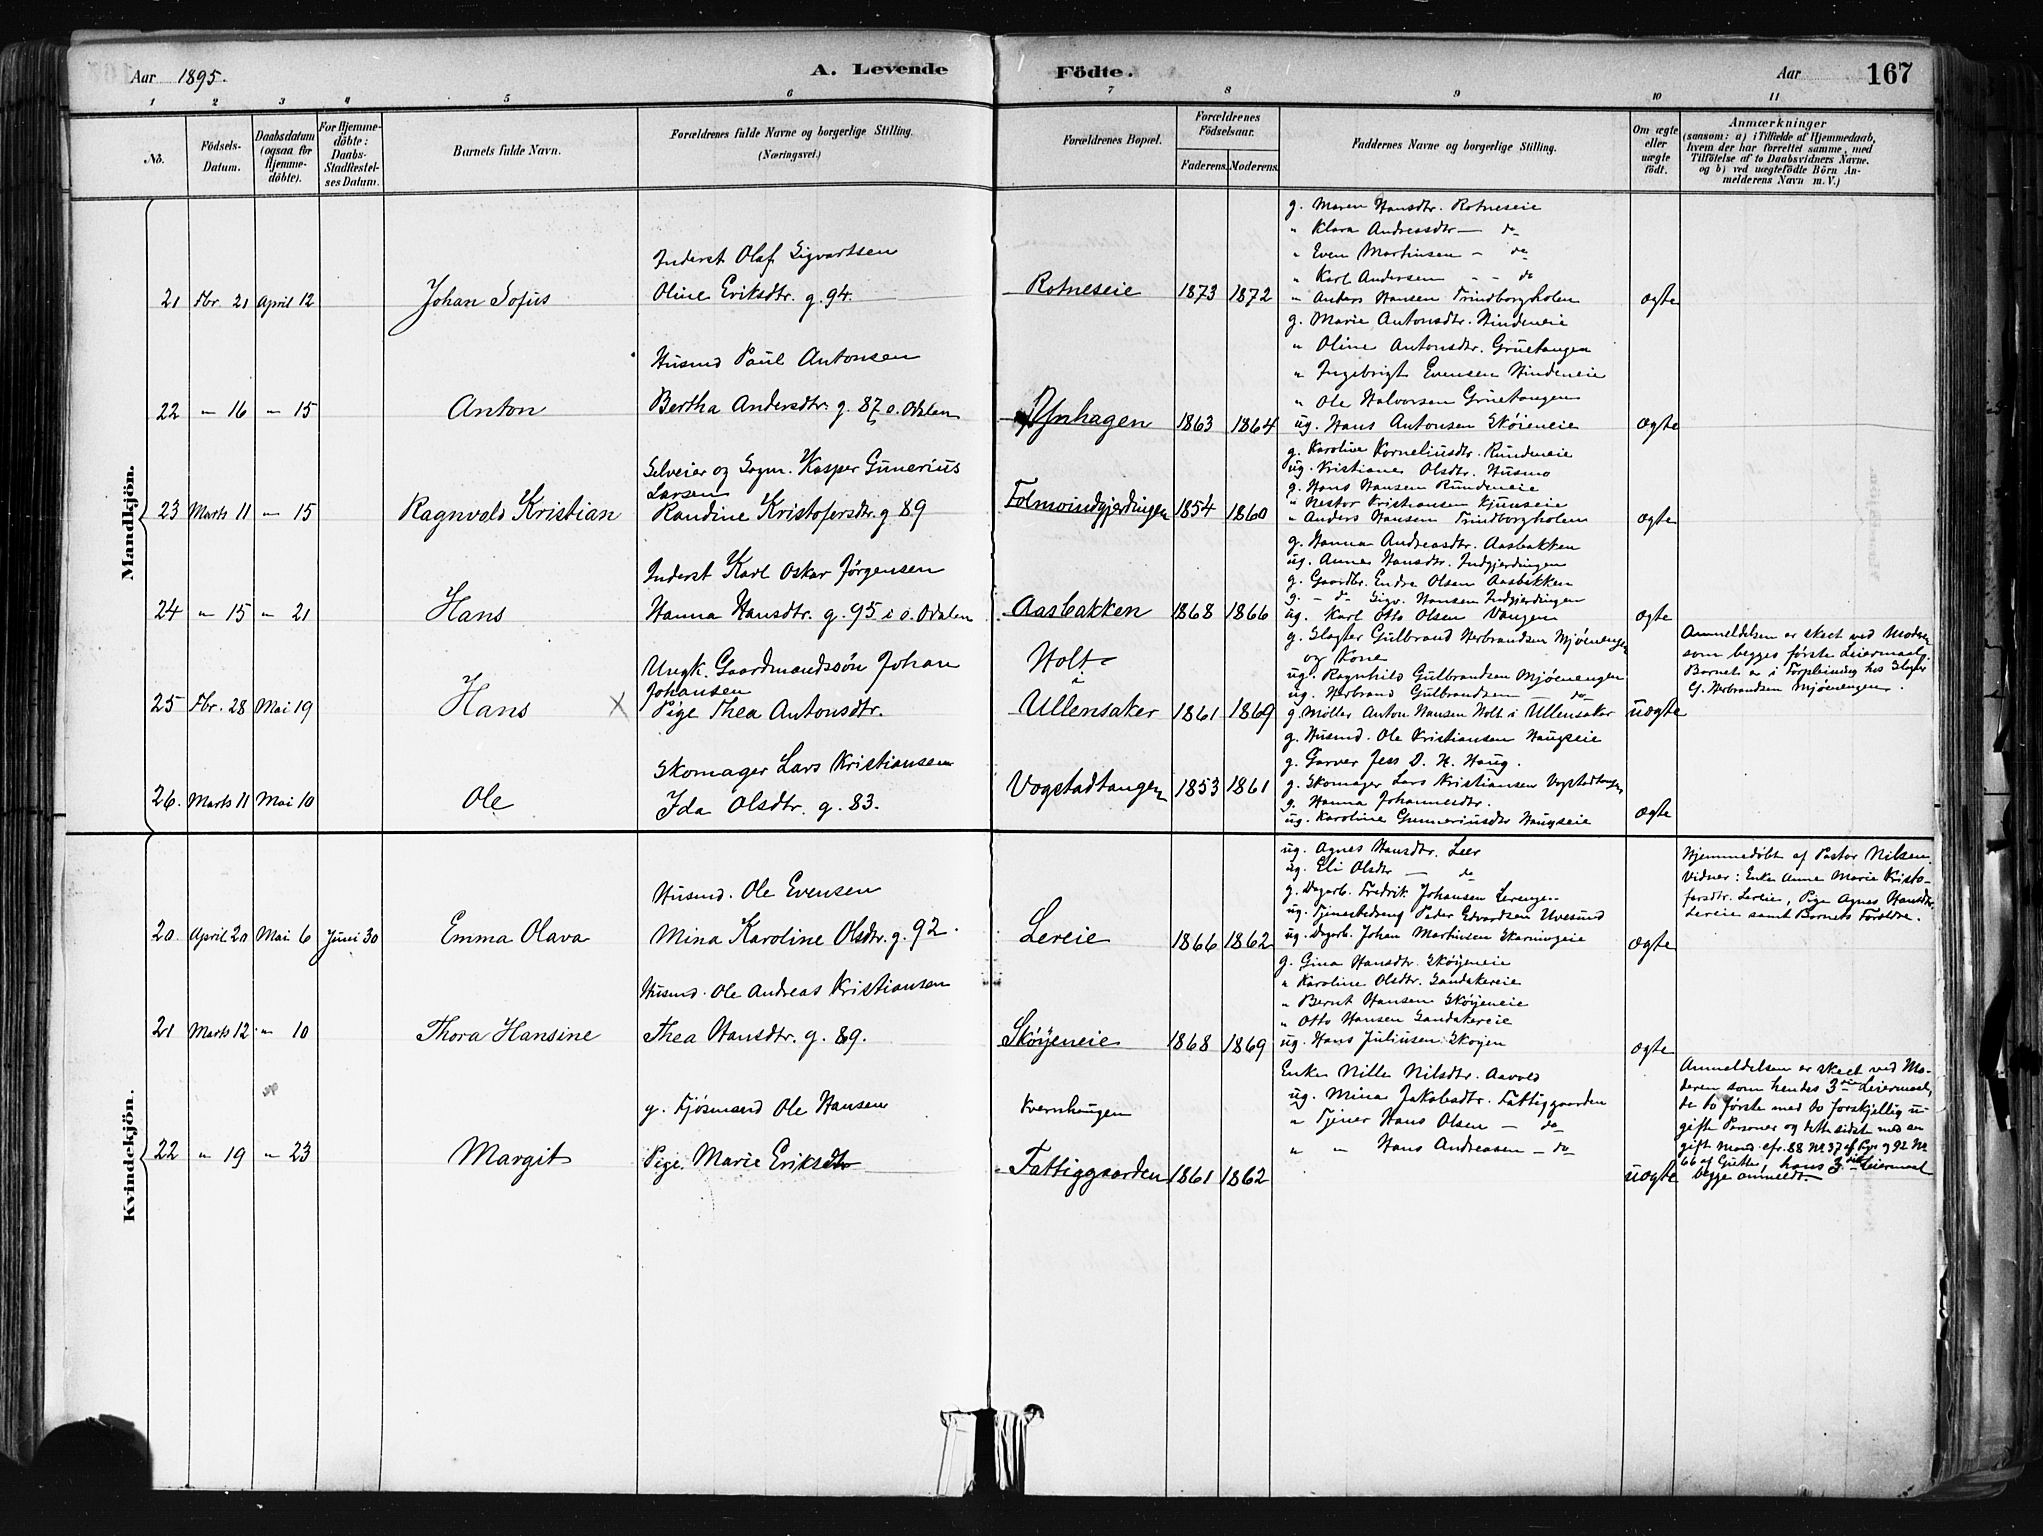 Aar 1895.
A. Levende Födte.
Aar
167
1 2 3 4 5 6 7 8 9 10 11
No.
Födsels-Datum.
Daabsdatum (ogsaa for Hjemme-döbte).
For Hjemme-döbte: Daabs-Stadfæstel-ses Datum.
Barnets fulde Navn.
Forældrenes fulde Navne og borgerlige Stilling. (Næringsvei.)
Forældrenes Bopæl.
Forældrenes Födselsaar.
Faderens. Moderens.
Faddernes Navne og borgerlige Stilling.
Om ægte eller uægte födt.
Anmærkninger
(saasom: a) i Tilfælde af Hjemmedaab,
hvem der har forrettet samme, med
Tilföielse af to Daabsvidners Navne.
og b) ved uægtefödte Börn An-
melderens Navn m. V.)
Mandkjön.
21 Fbr. 21 April 12
Johan Sofus
Inderst Olaf Sigvartsen
Oline Eriksdtr. g. 94.
Rotneseie
1873 1872
g. Maren Hansdtr. Rotneseie
" Klara Andreasdtr — do
" Even Martinsen - do
" Karl Andersen - - do
" Anders Hansen Trindborgholen
ægte
22 " 16 " 15
Anton
Husmd Paul Antonsen
Bertha Andersdtr. g. 87 s. Odalen
Nyhagen
1863 1864
g. Marie Antonsdtr. Hindeneie
" Oline Antonsdtr. Gruetangen
" Ingebrigt Evensen Hindeneie
" Ole Halvorsen Gruetangen
ug. Hans Antonsen Skøieneie
ægte
23 Marts 11 " 15
Ragnvald Kristian
Selveier og Sagm. Kasper Gunerius
Larsen
Randine Kristofersdtr. g 89
Folmoindgjerdingen
1854 1860
g. Karoline Korneliusdtr. Rundeneie
ug. Kristiane Olsdtr. Husmo
g. Hans Hansen Rundeneie
" Nestor Kristiansen Kjunseie
" Anders Hansen Trindborgholen
ægte
24 " 15 " 21
Hans
Inderst Karl Oskar Jørgensen
Hanna Hansdtr. g. 95 i s. Odalen
Aasbakken
1868 1866
g. Hanna Andreasdtr. Aasbakken
ug. Anne Hansdtr. Indgjerdingen
g. Gaardbr. Endre Olsen Aasbakken
g. - do - Sigv. Hansen Indgjerdingen
ug. Karl Otto Olsen Vangen
ægte
25 Fbr. 28 Mai 19
Hans
X
Ungk. Gaardmandssøn Johan
Johansen
Pige Thea Antonsdtr.
Holt
i
Ullensaker
1861 1869
g. Slagter Gulbrand Herbrandsen Mjøenengen
og Kone
ug. Ragnhild Gulbrandsen Mjøenengen
ug. Herbrand Gulbrandsen — do
g. Møller Anton Hansen Holt i Ullensaker
uægte
Anmeldelsen er skeet ved Moderen
som begges første Leiermaal,
Barnet er i Forpleining hos Slagter
G. Herbrandsen Mjøenengen.
26. Marts 11 Mai 10
Ole
Skomager Lars Kristiansen
Ida Olsdtr. g. 83.
Vogstadtangen
1853 1861
g. Husmd. Ole Kristiansen Haugseie
g. Garver Jess D. H. Haug.
g. Skomager Lars Kristiansen Vogstadtangen
g. Hanna Johannesdtr.
ug. Karoline Gunneriusdtr Haugseie
ægte
Kvindekjön.
20. April 20 Mai 6 Juni 30
Emma Olava
Husmd. Ole Evensen
Mina Karoline Olsdtr. g. 92.
Lereie
1866 1862
ug. Agnes Hansdtr. Leer
ug. Eli Olsdtr — do
g. Dagarb. Fredrik Johansen
ug. Peder Edvardsen
ug. Dagarb. Johan Martinsen Skarningeie
ægte
Hjemmedøbt af Pastor Nilsen.
Vidner: Enke Anne Marie Kristo-
fersdtr. Lereie, Pige Agnes Hansdtr.
Lereie samt Barnets Forældre.
21 Marts 12 " 10
Thora Hansine
Husmd. Ole Andreas Kristiansen
Thea Hansdtr. g. 89.
Skøyeneie
1868 1869
g. Gina Hansdtr. Skøyeneie
" Karoline Olsdtr. Sandakereie
" Bernt Hansen Skøyeneie
" Otto Hansen Sandakereie
ug. Hans Juliusen Skøyen
ægte
22 " 19 " 23
Margit
g. Fjøsmand Ole Hansen
Pige. Marie Eriksdtr
Kvernhaugen
Fattiggaarden
1861 1862
Enke Nille Nilsdtr. Aavold
ug. Mina Jakobsdtr. Fattiggaarden
" Tjener Hans Olsen — do
" " Hans Andreasen — do
uægte
Anmeldelsen er skeet ved Mo-
deren som hendes 3die Leiermaal,
de to første med to forskjellig u-
gifte Personer og dette sidste med en
gift Mand. cfr. 88 No 37 af Pger og 92 No
66 af Gutter, hans 3die Leiermaal
begge anmeldt.